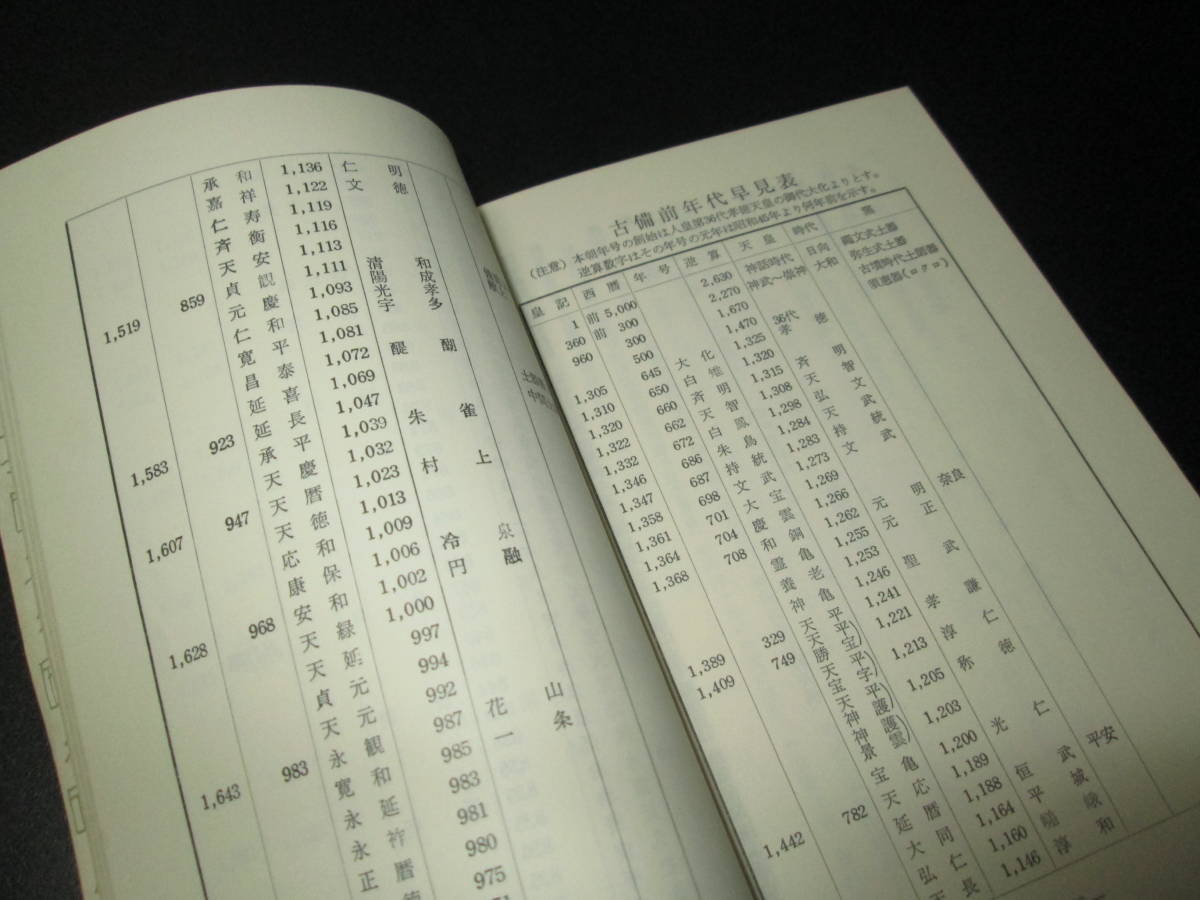 承和 1,136 仁明
嘉祥 1,122 文徳
仁寿 1,119
斉衡 1,116
天安 1,113
1,519 859 貞観 1,111 清和
元慶 1,093 陽成
仁和 1,085 光孝
寛平 1,081 宇多
昌泰 1,072 醍醐
延喜 1,069
延長 1,047
1,583 923 承平 1,039 朱雀
天慶 1,032
1,607 947 天暦 1,023 村上
天徳 1,013
応和 1,009
康保 1,006
1,628 968 安和 1,002 冷泉
天緑 1,000 円融
天延 997
貞元 994
天元 992
1,643 983 永観 987
寛和 985 花山
永延 983 一条
永祚 981
正暦 980
徳 975
古備前年代早見表
(注意) 本朝年号の創始は人皇第36代孝徳天皇の御代大化よりとす。
逆算数字はその年号の元年は昭和45年より何年前を示す。
皇記 西暦 年号 逆算 天皇 時代 窯
1 前5,000 2,630 神話時代 日向 縄文式土器
360 前300 2,270 神武～崇神 大和 弥生式土器
960 300 1,670 古墳時代土師器
500 1,470 須恵器(ロクロ)
1,305 645 大化 1,325 36代孝徳
1,310 650 白雉 1,320
1,320 660 斉明 1,315 斉明
1,322 662 天智 1,308 天智
1,332 672 白鳳 1,298 弘文
1,346 686 朱鳥 1,284 天武
1,347 687 持統 1,283 持統
1,358 698 文武 1,273 文武
1,361 701 大宝 1,269
1,364 704 慶雲 1,266
1,368 708 和銅 1,262 元明 奈良
霊亀 1,255 元正
養老 1,253
神亀 1,246 聖武
1,389 329 天平 1,241
1,409 749 天平勝宝 1,221 孝謙
天平宝字 1,213 淳仁
天平神護 1,205 称徳
神護景雲 1,203
宝亀 1,200 光仁
天応 1,189
1,442 782 延暦 1,188 桓武 平安
大同 1,164 平城
弘仁 1,160 嵯峨
天長 1,146 淳和